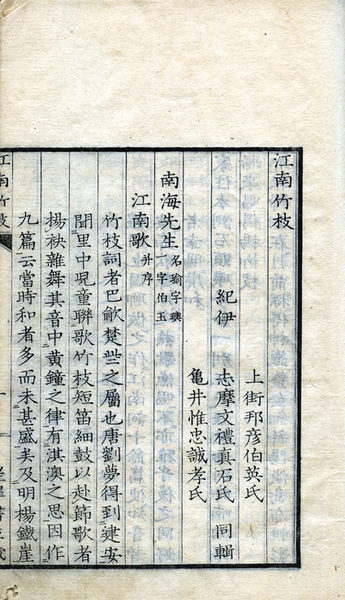 江南竹枝
上街邦彦伯英氏
紀伊 志摩文禮真石氏 同輯
亀井惟忠誠孝氏
南海先生 名瑜字
一字伯玉
江南歌 并序
竹枝詞者巴歈楚些之屬也唐劉夢得到建安
聞里中児童聯歌竹枝短笛細鼓以赴節歌者
揚袂雜舞其音中黄鐘之律有淇澳之思因作
九篇云當時和者多而未甚盛矣及明楊鐵崖
江南竹枝